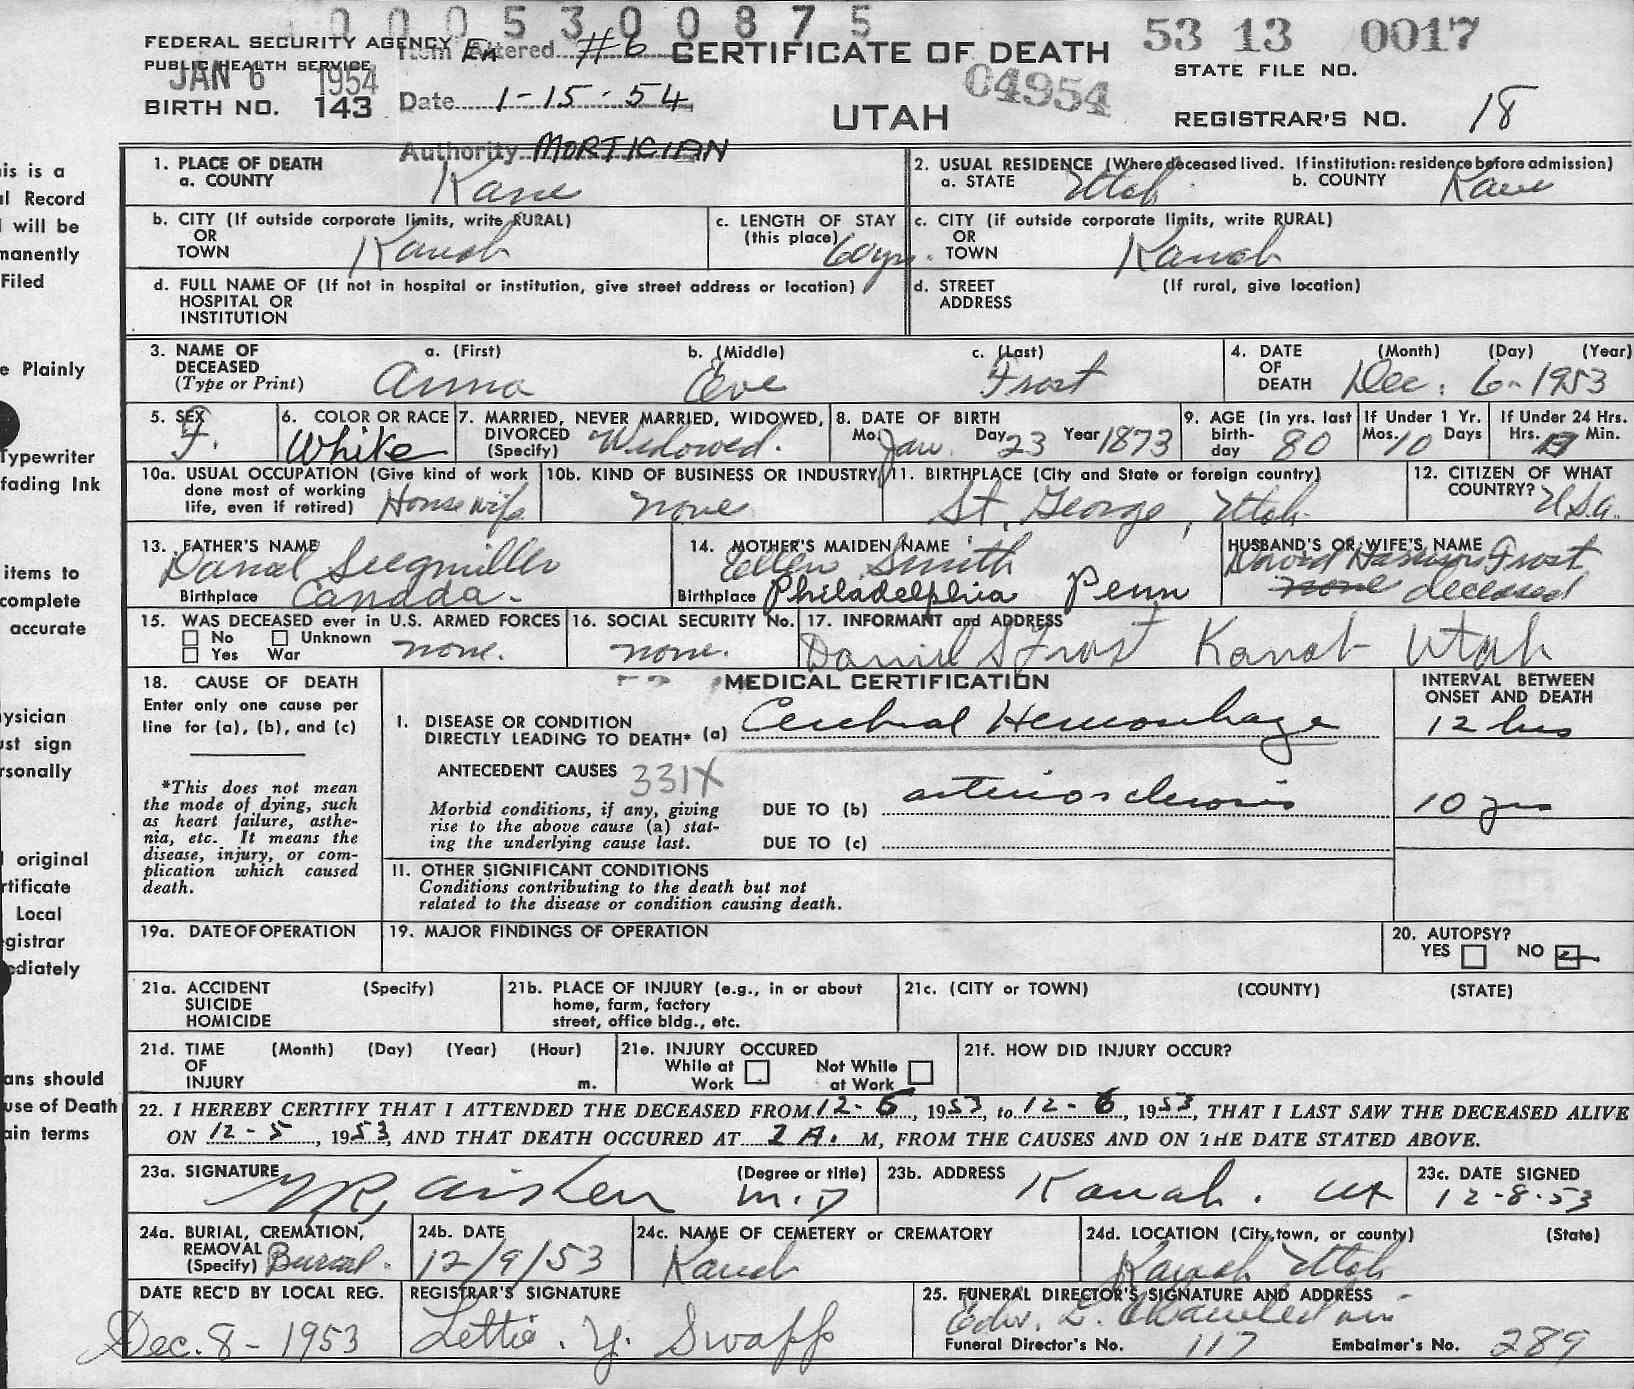 0 0 0 5 3 0 0 8 7 5
FEDERAL SECURITY AGENCY
PUBLIC HEALTH SERVICE
JAN 6 1954
BIRTH NO. 143
Item Entered #6
Date 1-15-54
Authority MORTICIAN
CERTIFICATE OF DEATH
UTAH
04954
53 13 0017
STATE FILE NO.
REGISTRAR'S NO. 18
1. PLACE OF DEATH
a. COUNTY Kane
2. USUAL RESIDENCE (Where deceased lived. If institution: residence before admission)
a. STATE Utah b. COUNTY Kane
b. CITY (If outside corporate limits, write RURAL)
OR
TOWN Kanab
c. LENGTH OF STAY
(this place) 60 yrs.
c. CITY (if outside corporate limits, write RURAL)
OR
TOWN Kanab
d. FULL NAME OF (If not in hospital or institution, give street address or location)
HOSPITAL OR
INSTITUTION
d. STREET (If rural, give location)
ADDRESS
3. NAME OF DECEASED (Type or Print)
a. (First) b. (Middle) c. (Last)
Anna Eve Frost
4. DATE OF DEATH (Month) (Day) (Year)
Dec. 6 - 1953
5. SEX F.
6. COLOR OR RACE White
7. MARRIED, NEVER MARRIED, WIDOWED,
DIVORCED (Specify) Widowed.
8. DATE OF BIRTH
Mo. Jan Day 23 Year 1873
9. AGE (in yrs. last birth-day 80
If Under 1 Yr.
Mos. 10 Days
If Under 24 Hrs.
Hrs. Min.
10a. USUAL OCCUPATION (Give kind of work
done most of working
life, even if retired) Housewife
10b. KIND OF BUSINESS OR INDUSTRY
none
11. BIRTHPLACE (City and State or foreign country)
St. George, Utah
12. CITIZEN OF WHAT
COUNTRY? U.S.a.
13. FATHER'S NAME
Daniel Seegmiller
Birthplace Canada.
14. MOTHER'S MAIDEN NAME
Ellen Smith
Birthplace Philadelphia Penn
HUSBAND'S OR WIFE'S NAME
David Harrison Frost
none deceased
15. WAS DECEASED ever in U.S. ARMED FORCES
No Unknown
Yes War none.
16. SOCIAL SECURITY No.
none.
17. INFORMANT and ADDRESS
Daniel S Frost Kanab Utah
18. CAUSE OF DEATH
Enter only one cause per
line for (a), (b), and (c)
*This does not mean
the mode of dying, such
as heart failure, asthe-
nia, etc. It means the
disease, injury, or com-
plication which caused
death.
MEDICAL CERTIFICATION
INTERVAL BETWEEN
ONSET AND DEATH
I. DISEASE OR CONDITION
DIRECTLY LEADING TO DEATH* (a) Cerebral Hemorrhage 12 hrs
ANTECEDENT CAUSES 331X
Morbid conditions, if any, giving
rise to the above cause (a) stat-
ing the underlying cause last.
DUE TO (b) arteriosclerosis 10 yrs
DUE TO (c)
II. OTHER SIGNIFICANT CONDITIONS
Conditions contributing to the death but not
related to the disease or condition causing death.
19a. DATE OF OPERATION
19. MAJOR FINDINGS OF OPERATION
20. AUTOPSY?
YES NO
21a. ACCIDENT (Specify)
SUICIDE
HOMICIDE
21b. PLACE OF INJURY (e.g., in or about
home, farm, factory
street, office bldg., etc.
21c. (CITY or TOWN) (COUNTY) (STATE)
21d. TIME (Month) (Day) (Year) (Hour)
OF
INJURY m.
21e. INJURY OCCURED
While at Work Not While at Work
21f. HOW DID INJURY OCCUR?
22. I HEREBY CERTIFY THAT I ATTENDED THE DECEASED FROM 12-5, 1953, to 12-6, 1953, THAT I LAST SAW THE DECEASED ALIVE
ON 12-5, 1953, AND THAT DEATH OCCURED AT 2 A. M, FROM THE CAUSES AND ON THE DATE STATED ABOVE.
23a. SIGNATURE (Degree or title)
Aiken M.D
23b. ADDRESS
Kanab. Ut
23c. DATE SIGNED
12-8-53
24a. BURIAL, CREMATION,
REMOVAL
(Specify) Burial.
24b. DATE
12/9/53
24c. NAME OF CEMETERY or CREMATORY
Kanab
24d. LOCATION (City, town, or county) (State)
Kanab Utah
DATE REC'D BY LOCAL REG.
Dec. 8 - 1953
REGISTRAR'S SIGNATURE
Lettie. Y. Swapp
25. FUNERAL DIRECTOR'S SIGNATURE AND ADDRESS
Funeral Director's No. 117 Embalmer's No. 289
his is a
al Record
will be
manently
Filed
e Plainly
Typewriter
fading Ink
items to
complete
accurate
ysician
ust sign
rsonally
original
rtificate
Local
egistrar
ediately
ans should
use of Death
ain terms